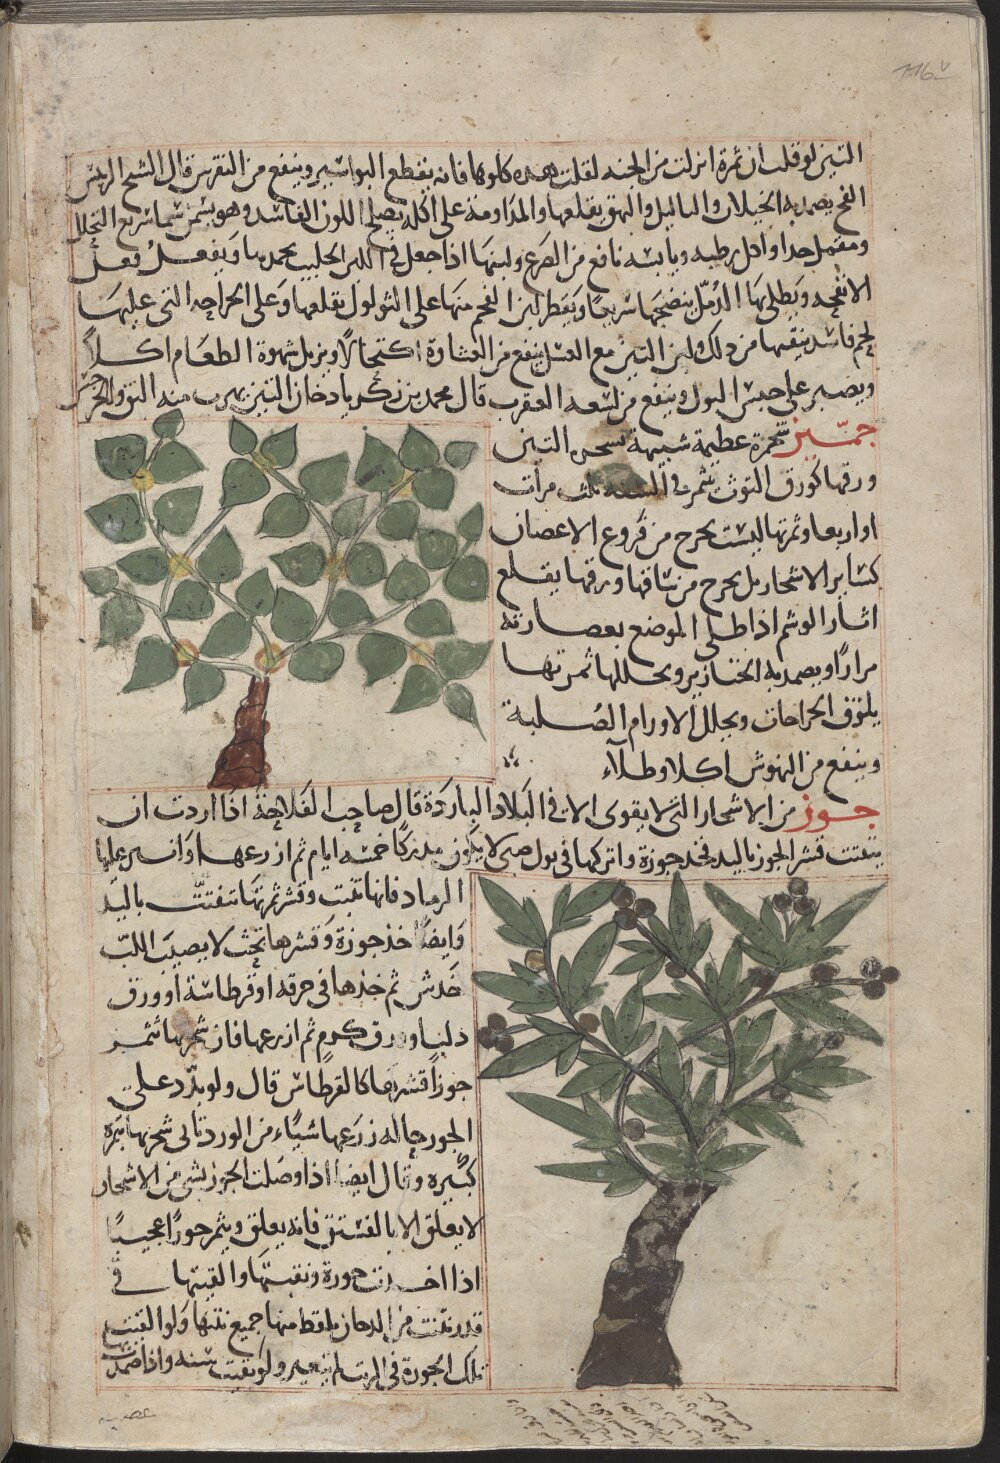 116v
التين لو قلت ان ثمرة انزلت من الجنه لقلت هذه كلوها فانه يقطع البواسير وينفع من النقرس قال الشيخ الرئيس
الفج يضمد به الخيلان والثاليل والبهق يقلعها والمداومة على اكله يصلح اللون الفاسد وهو يسمن سمنا سريع التحلل
ومقمل جدا واكل رطبه ويابسه نافع من الصرع ولبنها اذا جعل في اللبن الحليب يجمده ويفعل فعل
الانفحه ويطلى بها الدمل ينضجها سريعا ويقطر لبن الفج منها على الثولول يقلعها وعلى الجراحه التى عليها
لحم فاسد ينقيها من ذلك ولبن التين مع العسل ينفع من الغشارة اكتحالا ويزيل شهوة الطعام اكلا
ويصبر على حبس البول وينفع من لسعه العقرب قال محمد بن زكريا دخان التين يهرب منه البق والجرجس
جميز شجرة عظيمة شبيهة بشجرة التين
ورقها كورق التوث تثمر في السنه ثلث مرات
او اربعا وثمرتها ليست تخرج من فروع الاغصان
كساير الاشجار بل يخرج من ساقها ورقها يقلع
اثار الوشم اذا طلى الموضع بعصارته
مرارا ويضمد به الخنازير ويحللها ثمرتها
يلزق الجراحات ويحلل الاورام الصلبة
وينفع من النهوش اكلا وطلاء
جوز من الاشجار التى لا يقوى الا في البلاد الباردة قال صاحب الفلاحة اذا اردت ان
يتفتت قشر الجوز باليد فخذ جوزة واتركها في بول صبى لا يكون مدركا خمسه ايام ثم ازرعها وانثر عليها
الرماد فانها تنبت وقشر ثمرتها تتفتت باليد
وايضا خذ جوزة وقشرها بحيث لا يصيب اللب
خدش ثم خذها في خرقه او قرطاسة او ورق
دلب او ورق كرم ثم ازرعها فان شجرتها تثمر
جوزا قشرها كالقرطاس قال ولو بدد على
الجوز حاله زرعها شياء من الورد تاتى شجرتها بثمرة
كبيره وقال ايضا اذا وصلت الجوز بشى من الاشجار
لا يعلق الا بالفستق فانه يعلق ويثمر جوزا عجيبا
اذا اخذت جوزة ونقبتها والقيتها في
قدر تنت من الدخان يلقط منها جميع نتنها ولو القيت
تلك الجوزة في الرماد لم تتغير ولو بقيت سنه واذا ضمدت